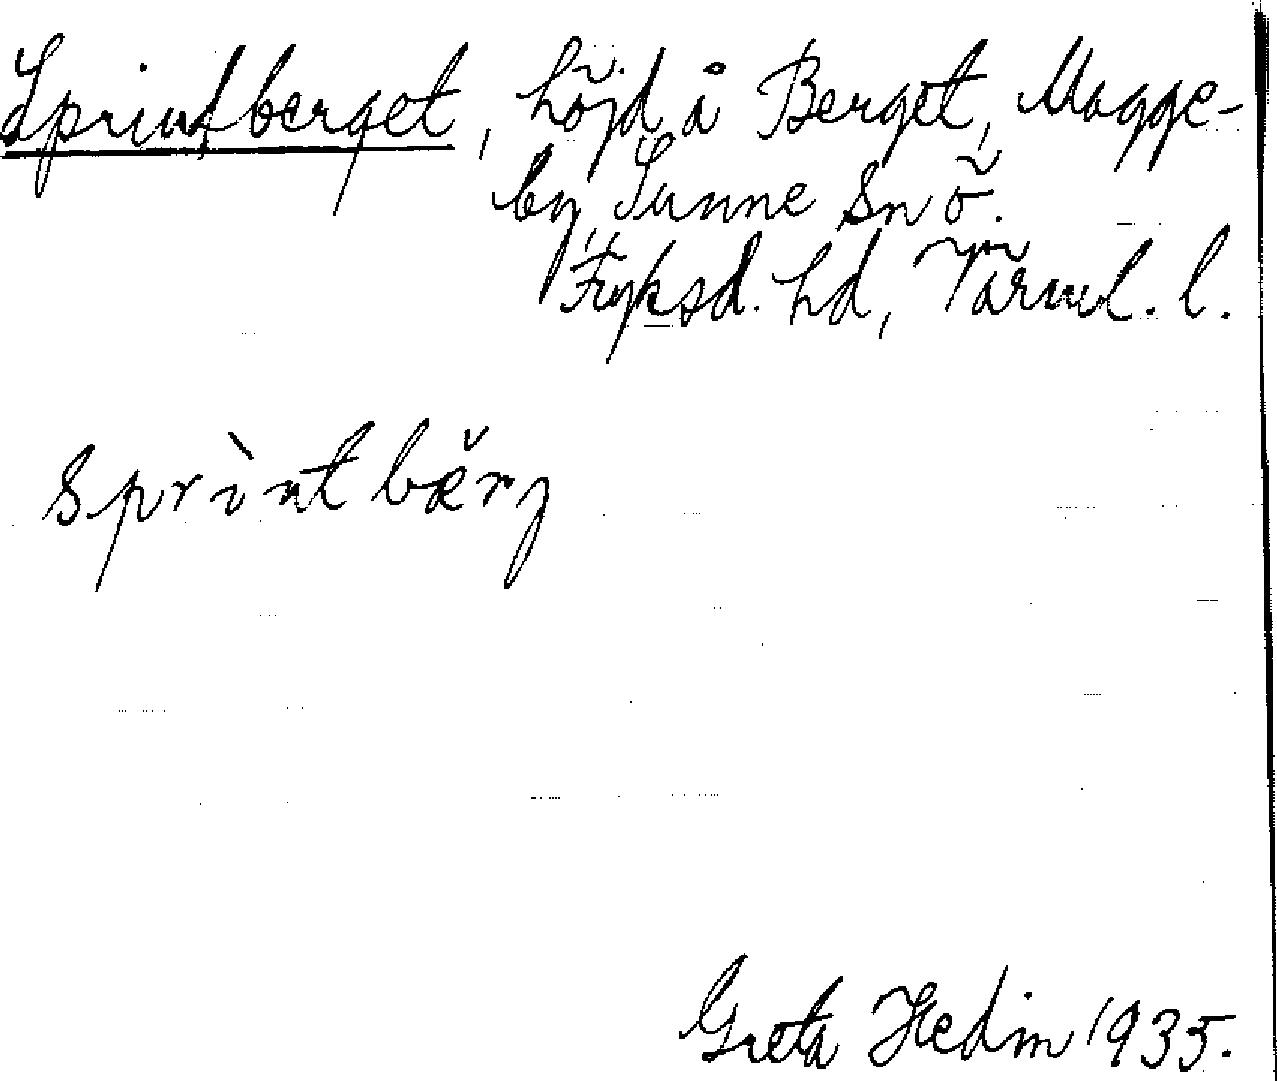 Sprintberget, höjd å Berget, Magge-
by, Sunne sn ö.
Fryksd. hd, Värml. l.
sprìntbærj
Greta Hedin 1935.